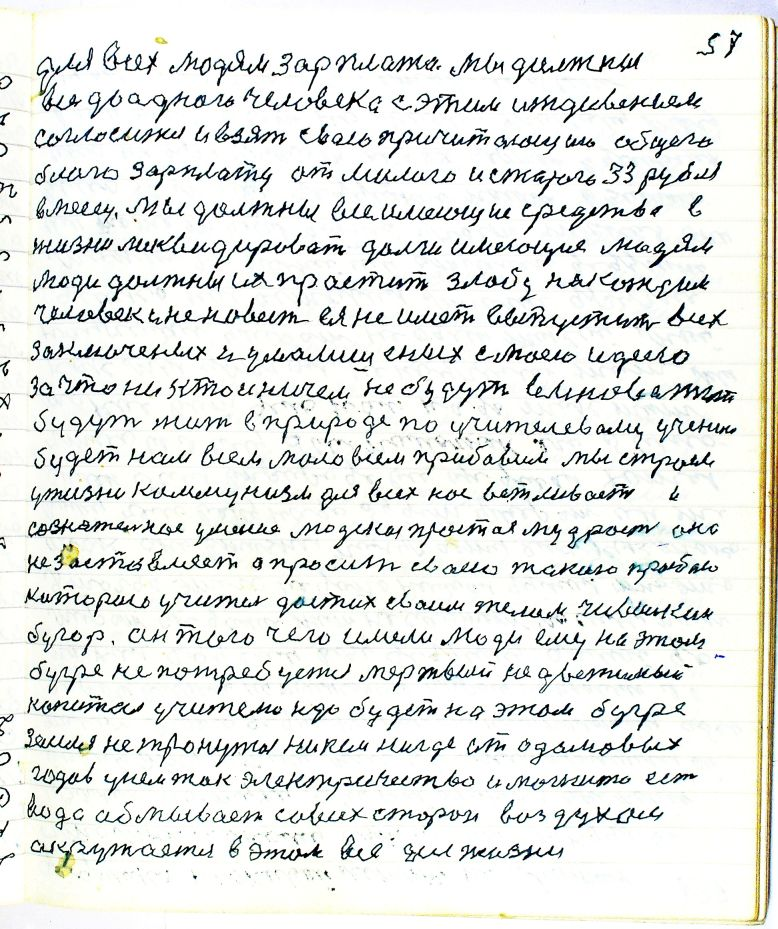 57
для всех людям зарплата. мы должны
все до адного человека с этим иждивеньем
согласится и взят свою причитающую общего
блага зарплату от малого и старого 33 рубля
вмесец. мы должны все имеющие средства в
жизни ликвидироват долги имеющие людям
люди должны их простит злобу на каждым
человеку не имет выпустит всех
заключеных и умолишеных с моею идеею
за что ни кто и ничем не будут
будут жит в природе по учителевому учению
будет нам всем мало всем прибавим мы строем
ужизни коммунизм для всех нас
сознателное умение людская простая мудрост она
незаставляет а просит своего такого
каторого учител достих своим телом чивилкин
бугор. ан того чего имели люди ему на этом
бугре не потребуется мертвый не движимый
капитал учителю надо будет на этом бугре
земля не тронутая никем нигде от адамовых
годов унем так электричество и магнито ест
вода абмывает совсих сторон воздухом
акружается в этом все жизни